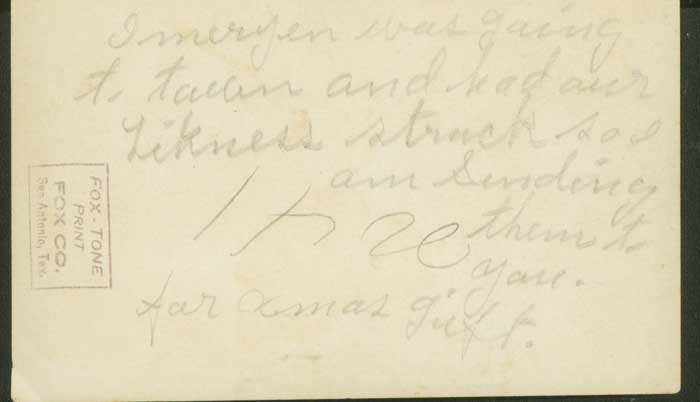 was going
to tawn and had our
Likness struck so I
am sending
them to
you.
for xmas gift.
FOX-TONE
PRINT
FOX CO.
San Antonio, Tex.